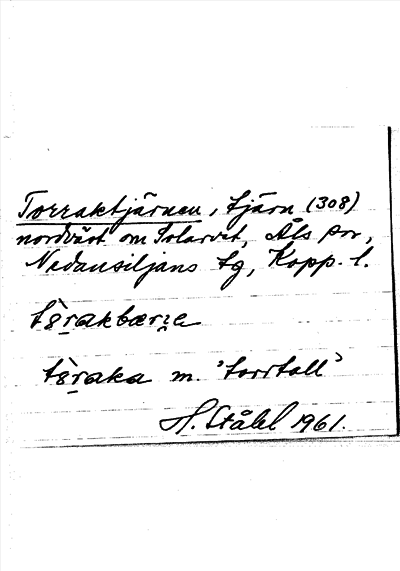 Torraktjärnen, tjärn (308)
nordväst om Solarvet, Åls sn,
Nedansiljans tg, Kopp. l.
m. 'torrtall'
H. Ståhl 1961.